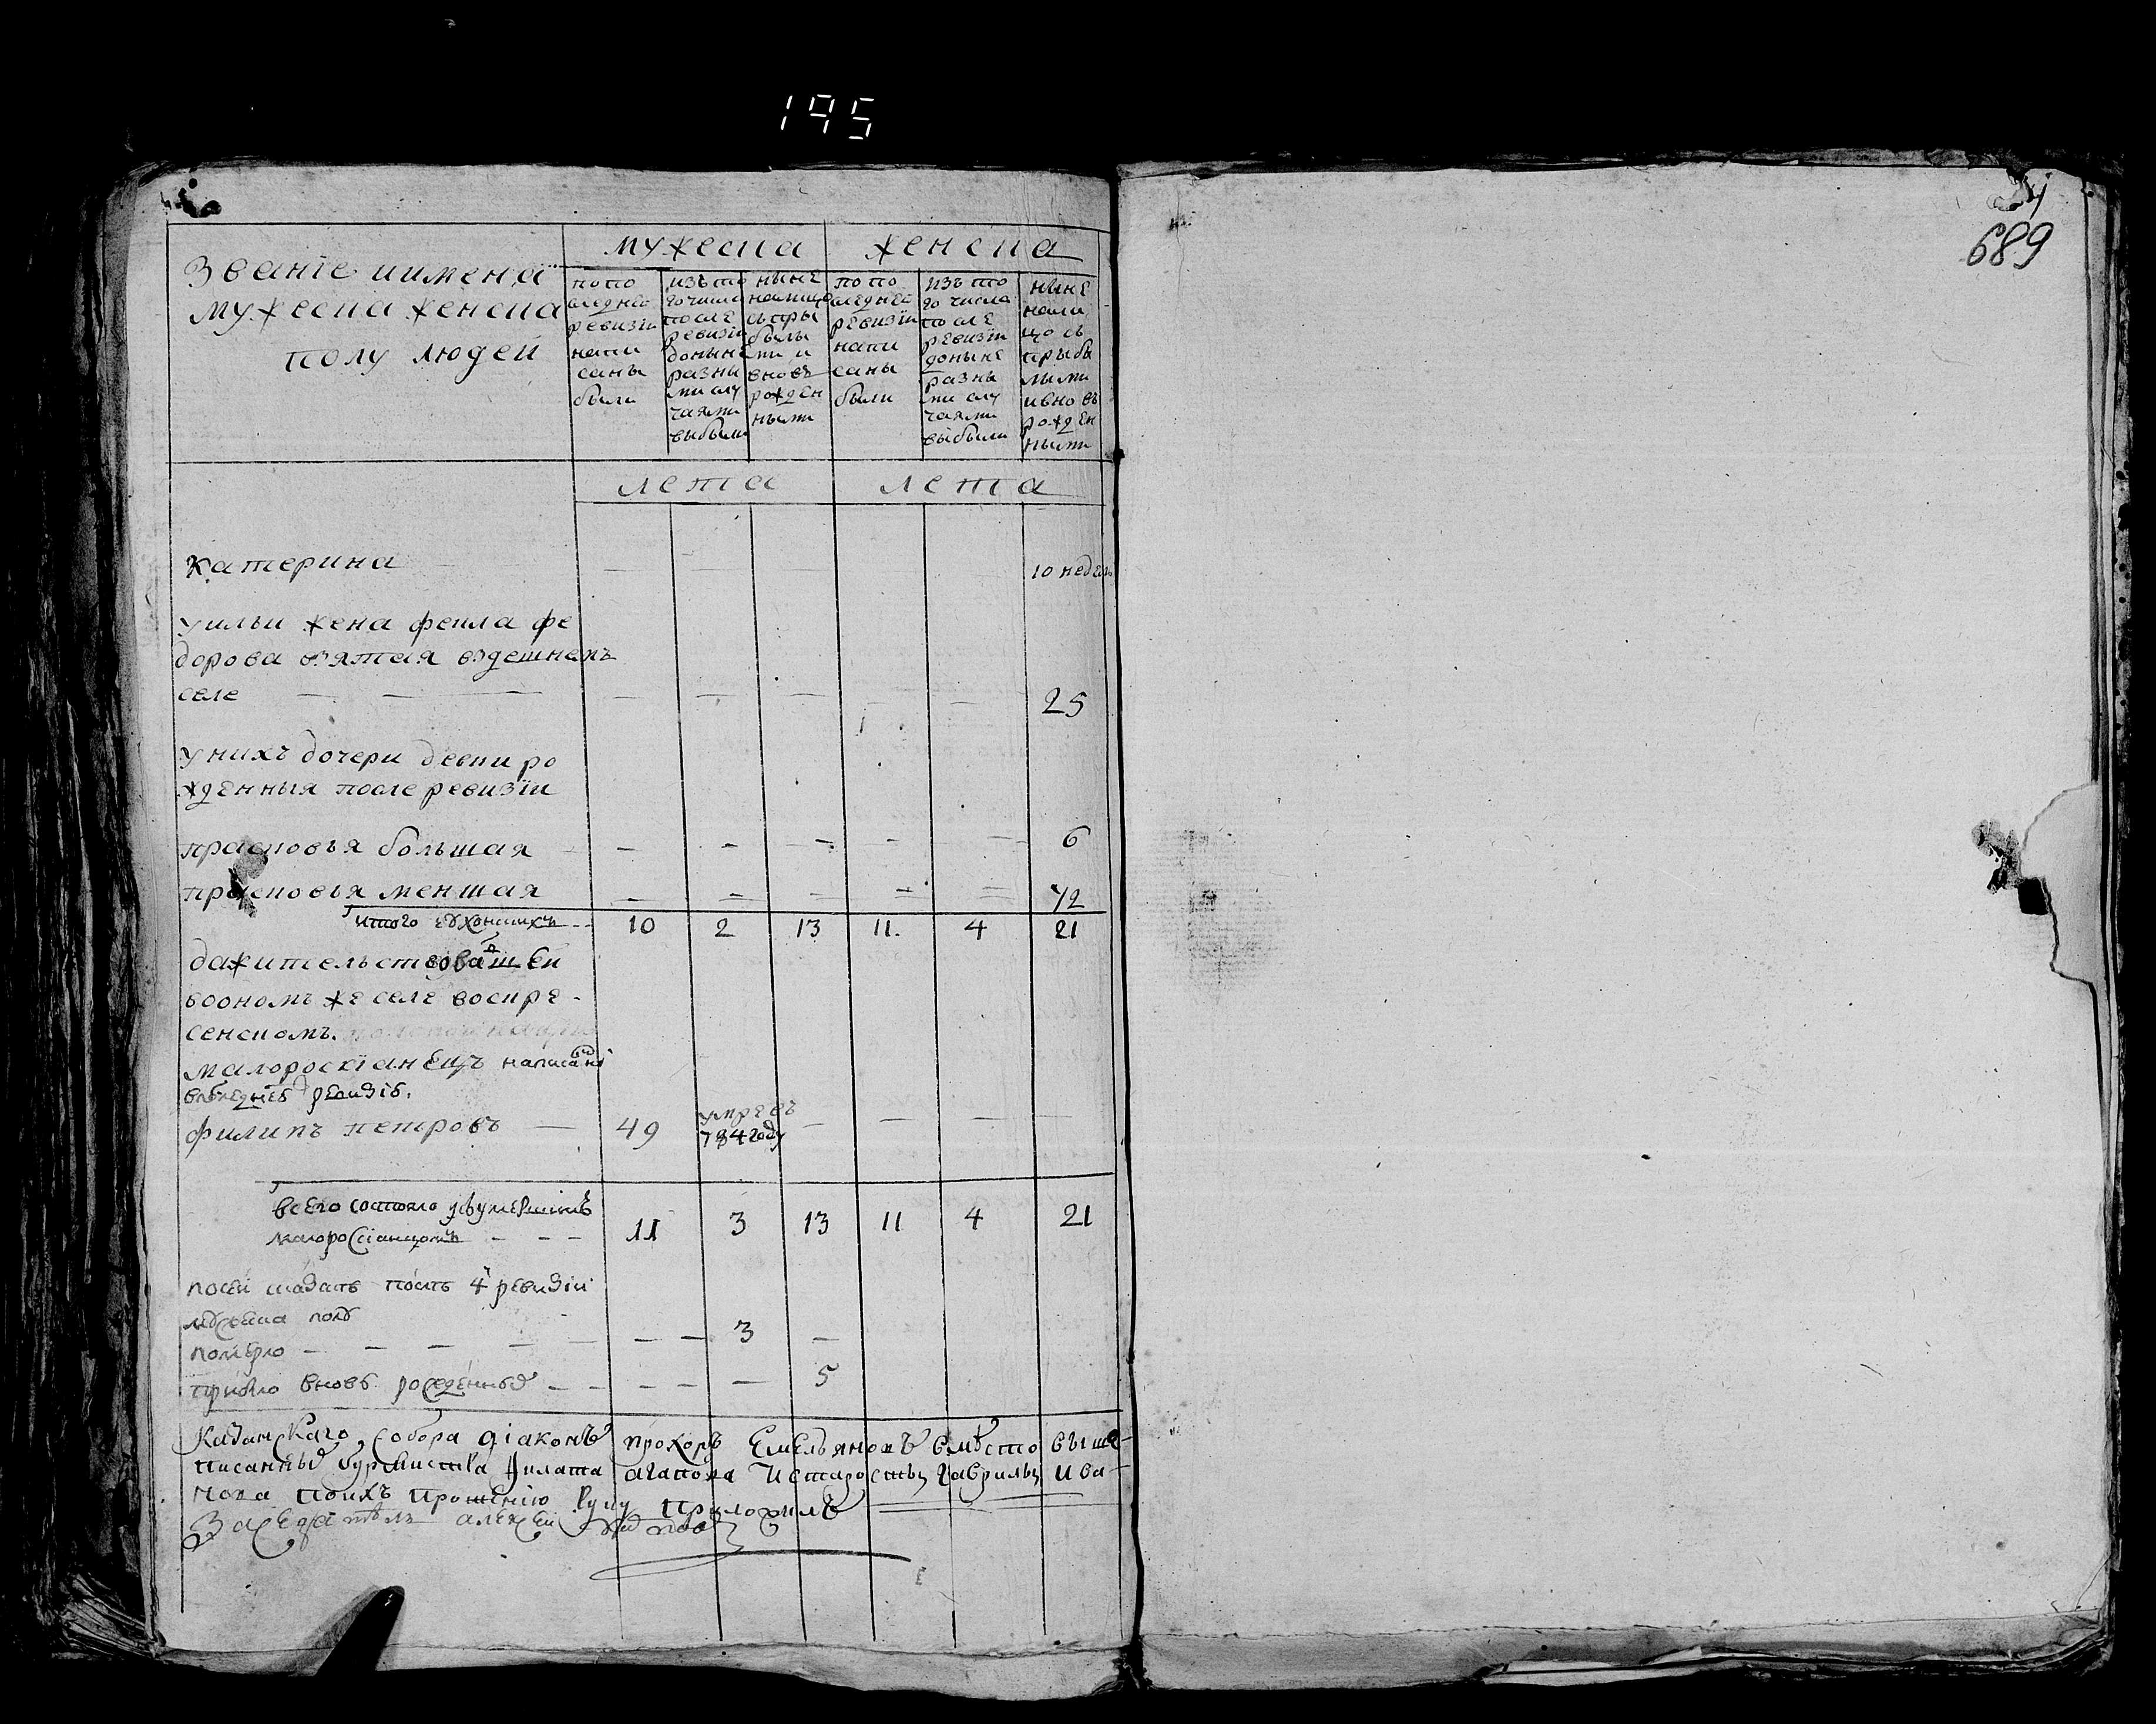 195
689
мужеска женска
Званїе иимена
мужеска женска
полу людей
попо
следнеі
ревизїи
напи
саны
были
изъ то
го числа
после
ревизїи
доныне
разны
ми слу
чаями
выбыли
ныне
налицо
съ при
былы
ми и
вновь
рожден
ными
попо
следнеі
ревизїи
напи
саны
были
изъ то
го числа
после
ревизїи
доныне
разны
ми слу
чаями
выбыли
ныне
нали
цо съ
прыбы
лыми
ивновь
рожден
ными
лета лета
Катерина 10 недель
уильи жена фекла фе
дорова взятая вздешнемъ
селе — — — — — — — — 25
унихъ дочери девки ро
жденныя после ревизїи
прасковья большая — — — — — 6
прасковья меншая — — — — — 1/2
итого 10 2 13 11. 4 21
дажительствовавшеи
воономъ же селе воскре-
сенскомъ.
малороскїанецъ написанной
ревизїѣ.
филипъ петровъ — 49 умре въ 784 году — — — —
всего состоло съумершимъ
малороссїанцомъ - - - 11 3 13 11 4 21
посей сказкѣ послѣ 4й ревизїи
мужеска полу
померло — — — — — — — 3 —
прибыло вновь рожденныхъ — — — — — 5
Казанскаго собора дїаконъ прохоръ Емельяновъ вмѣсто выше-
писанныхъ бурмистра Филата агапова истаросты гаврилы ива-
нова поихъ прошенїю руку приложилъ
Заседатель алексей